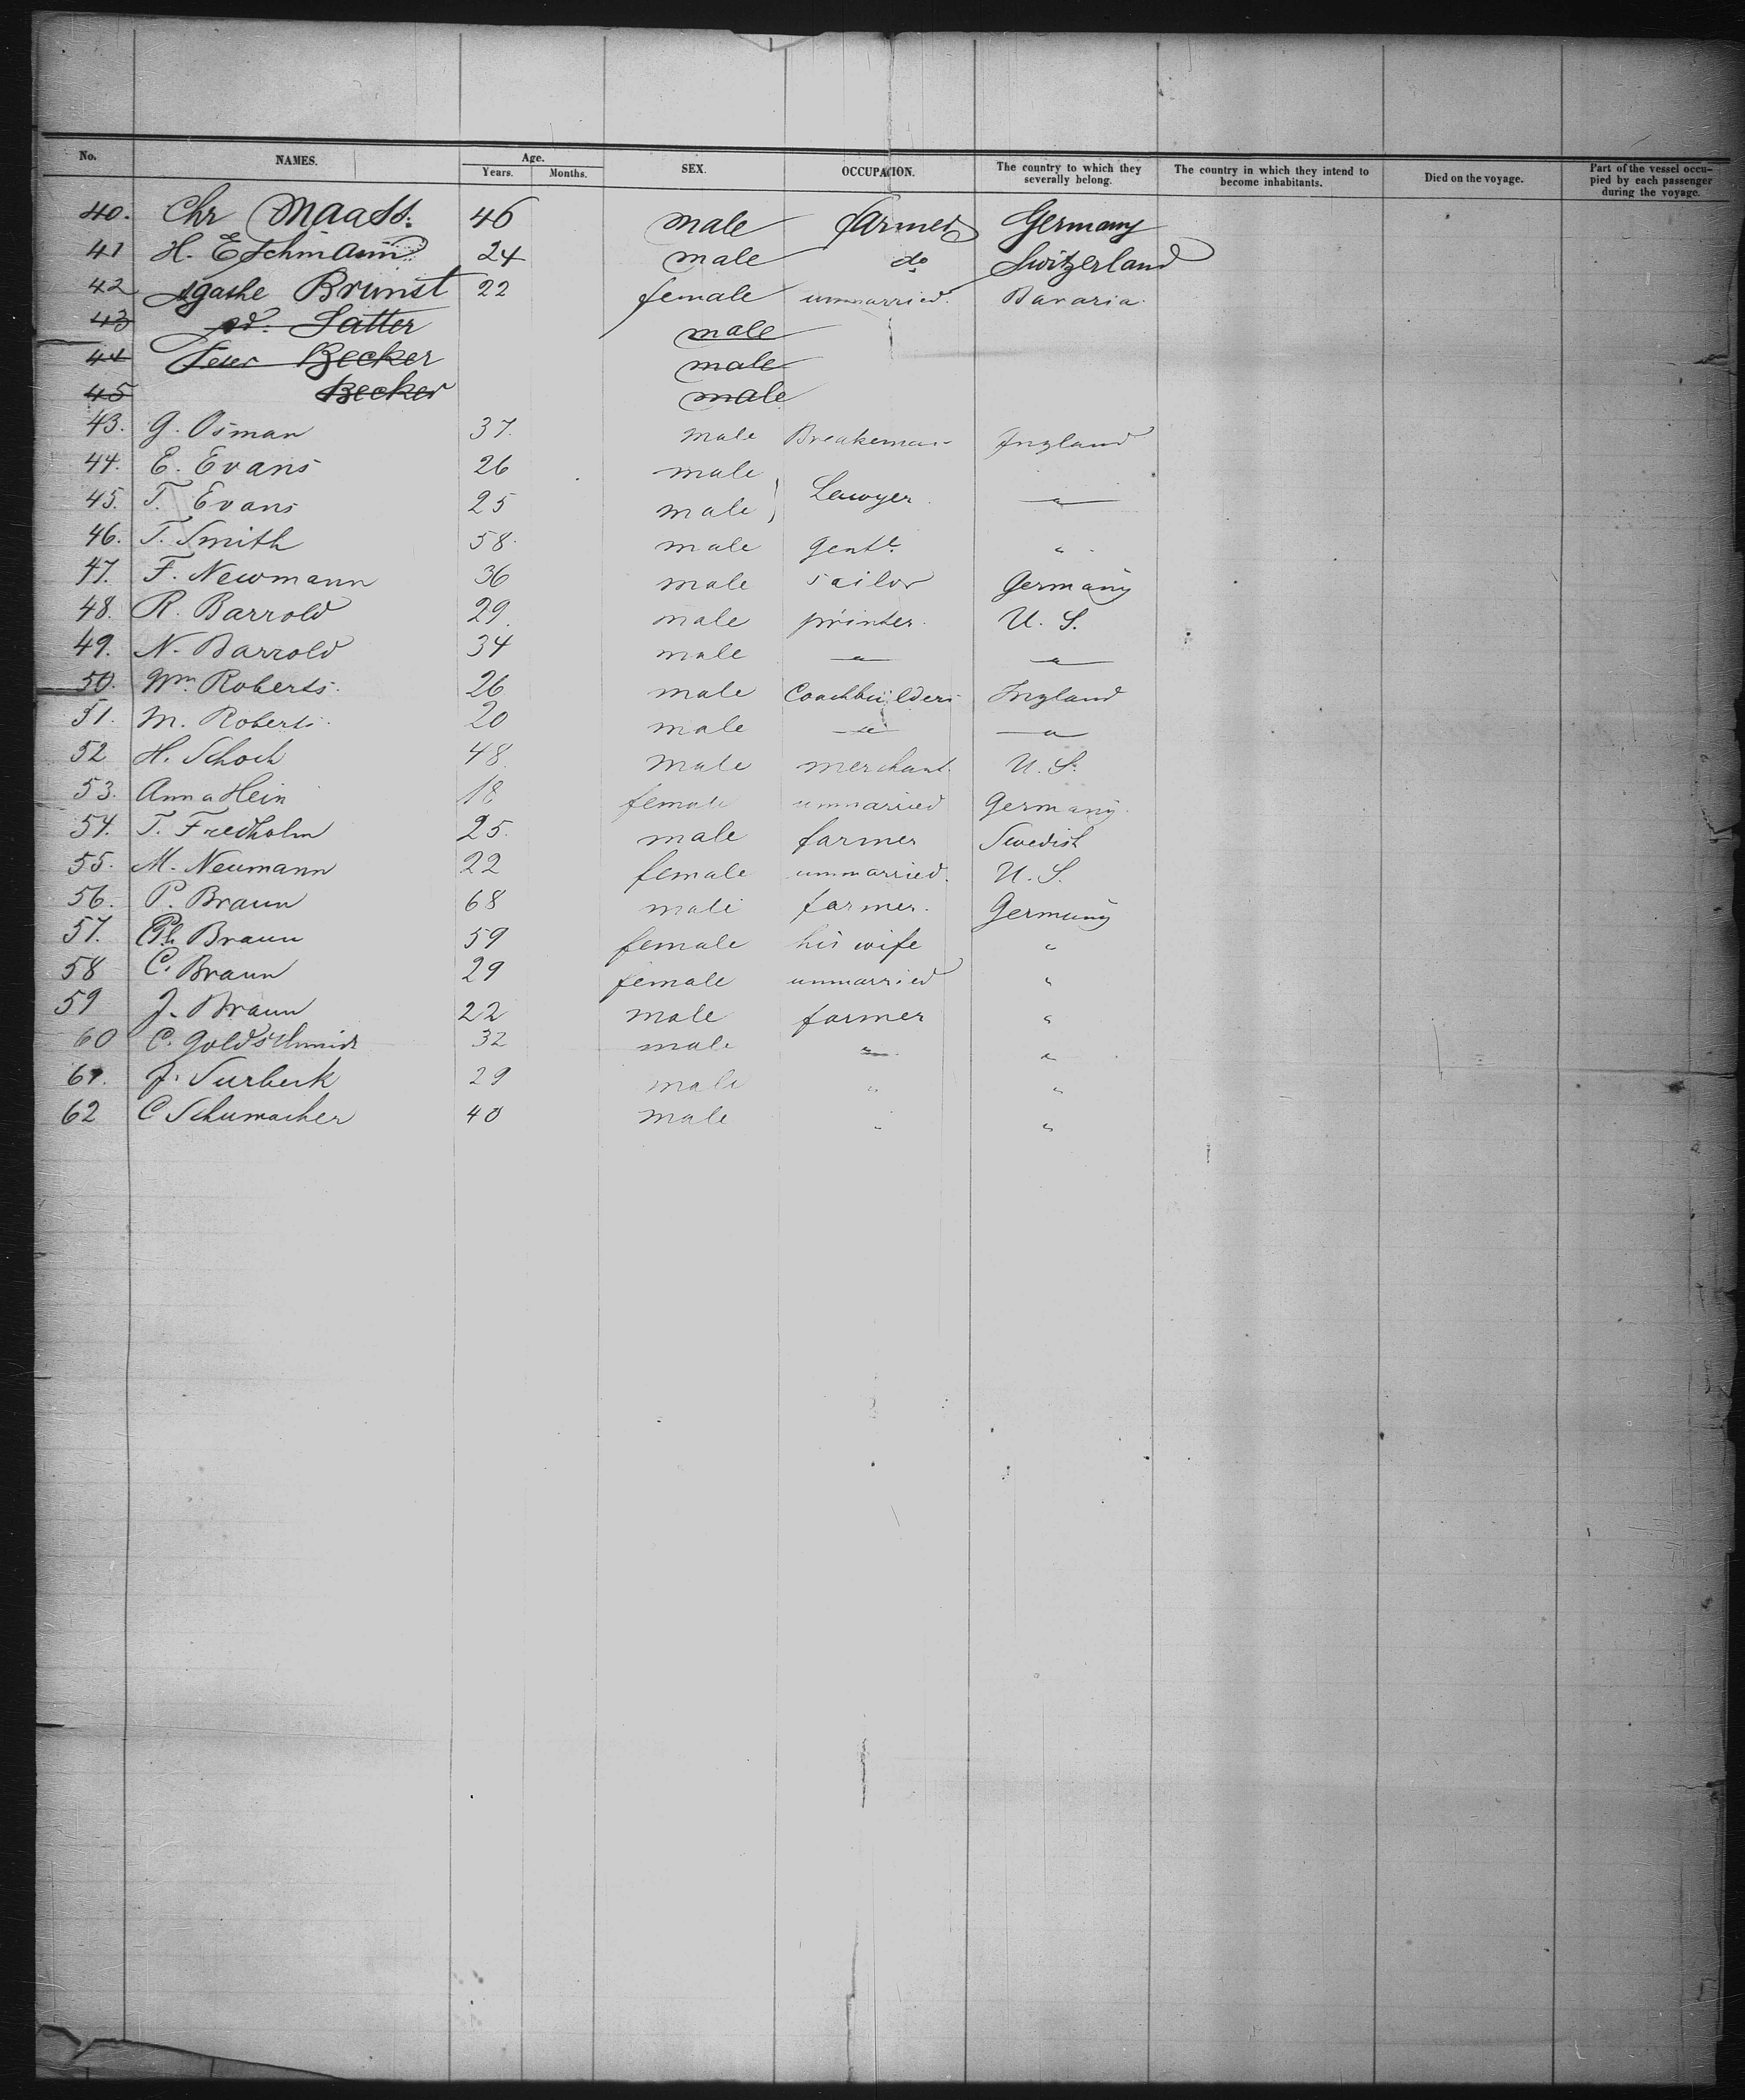 No. NAMES. Age. Years. Months. SEX. OCCUPACION. The country to which they severally belong. The country in which they intend to become inhabitants. Died on the voyage. Part of the vessel occupied by each passenger during the voyage.
40. Chr Maass. 46 male farmer Germany
41 H. Eschmann 24 male do Switzerland
42 Agathe Brunst 22 female unmarried. Bavaria.
43 Satter male
44 Becker male
45 Becker male
43. G. Osman 37. male Breakeman England
44. E. Evans 26 male
45. T. Evans 25 male } Lawyer. "
46. T. Smith 58. male gentl. "
47. F. Newmann 36 male sailor Germany
48. R. Barrold 29. male printer. U. S.
49. N. Barrold 34 male " "
50. Wm. Roberts. 26 male Coachbuilders England
51. M. Roberts. 20 male " "
52 H. Schoch 48. male merchant. U. S.
53. Anna Hein 18 female unmarried Germany.
54. T. Fredholm 25. male farmer Swedish
55. M. Neumann 22 female unmarried. U. S.
56. P. Braun 68 male farmer. Germany
57. Ph Braun 59 female his wife "
58 C. Braun 29 female unmarried "
59 J. Braun 22 male farmer "
60 C. Goldschmidt 32 male " "
61. J. Surbeck 29 male " "
62 C Schumacher 40 male " "